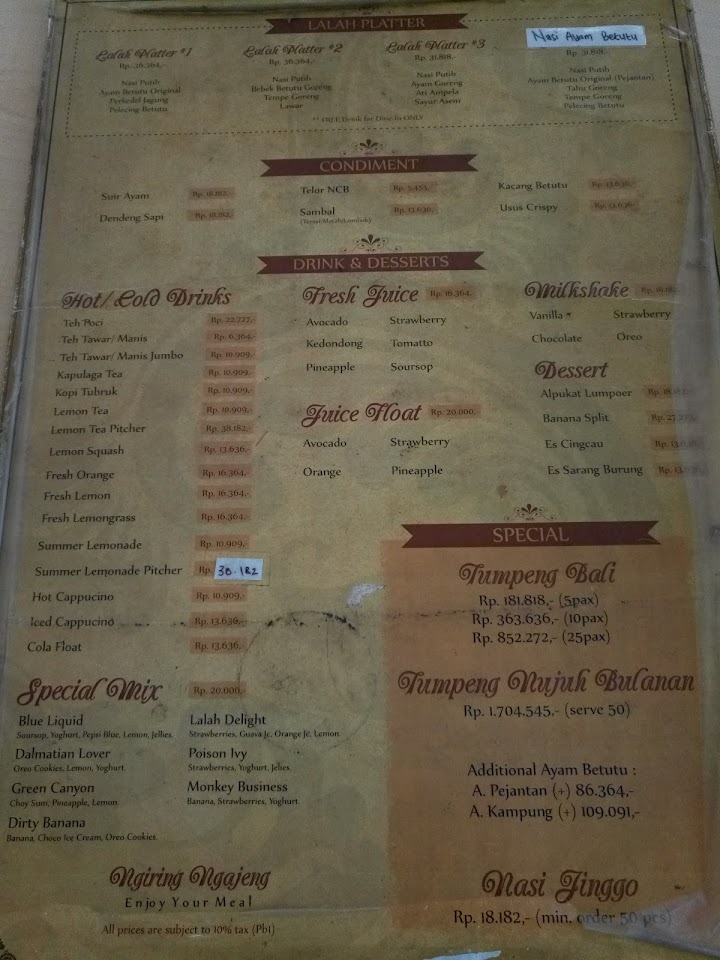 LALAH PLATTER
Lalah Platter #1
Rp. 36.364,-
Nasi Putih
Ayam Betutu Original
Perkedel Jagung
Pelecing Betutu
Lalah Platter #2
Rp. 36.364,-
Nasi Putih
Bebek Betutu Goreng
Tempe Goreng
Lawar
Lalah Platter #3
Rp. 31.818,-
Nasi Putih
Ayam Goreng
Ati Ampela
Sayur Asem
Nasi Ayam Betutu
Rp. 31.818,-
Nasi Putih
Ayam Betutu Original (Pejantan)
Tahu Goreng
Tempe Goreng
Pelecing Betutu
** FREE Drink for Dine In ONLY
CONDIMENT
Suir Ayam Rp. 18.182,-
Dendeng Sapi Rp. 18.182,-
Telor NCB Rp. 5.455,-
Sambal Rp. 13.636,-
Kacang Betutu Rp. 13.636,-
Usus Crispy Rp. 13.636,-
DRINK & DESSERTS
Hot/ Cold Drinks
Teh Poci Rp. 22.727,-
Teh Tawar/ Manis Rp. 6.364,-
Teh Tawar/ Manis Jumbo Rp. 10.909,-
Kapulaga Tea Rp. 10.909,-
Kopi Tubruk Rp. 10.909,-
Lemon Tea Rp. 10.909,-
Lemon Tea Pitcher Rp. 38.182,-
Lemon Squash Rp. 13.636,-
Fresh Orange Rp. 16.364,-
Fresh Lemon Rp. 16.364,-
Fresh Lemongrass Rp. 16.364,-
Summer Lemonade Rp. 10.909,-
Summer Lemonade Pitcher Rp. 30.182
Hot Cappucino Rp. 10.909,-
Iced Cappucino Rp. 13.636,-
Cola Float Rp. 13.636,-
Special Mix Rp. 20.000,-
Blue Liquid
Soursop, Yoghurt, Pepsi Blue, Lemon, Jellies.
Dalmatian Lover
Oreo Cookies, Lemon, Yoghurt.
Green Canyon
Choy Sum, Pineapple, Lemon.
Dirty Banana
Banana, Choco Ice Cream, Oreo Cookies.
Lalah Delight
Strawberries, Guava Jc, Orange Jc, Lemon.
Poison Ivy
Strawberries, Yoghurt, Jelies.
Monkey Business
Banana, Strawberries, Yoghurt.
Fresh Juice Rp. 16.364,-
Avocado Strawberry
Kedondong Tomatto
Pineapple Soursop
Juice Float Rp. 20.000,-
Avocado Strawberry
Orange Pineapple
Milkshake Rp. 18.182
Vanilla Strawberry
Chocolate Oreo
Dessert
Alpukat Lumpoer Rp. 18.182
Banana Split Rp.
Es Cingcau Rp.
Es Sarang Burung Rp.
SPECIAL
Tumpeng Bali
Rp. 181.818,- (5pax)
Rp. 363.636,- (10pax)
Rp. 852.272,- (25pax)
Tumpeng Nujuh Bulanan
Rp. 1.704.545,- (serve 50)
Additional Ayam Betutu :
A. Pejantan (+) 86.364,-
A. Kampung (+) 109.091,-
Nasi Jinggo
Rp. 18.182,- (min. order 50 pcs)
Ngiring Ngajeng
Enjoy Your Meal
All prices are subject to 10% tax (Pb1)